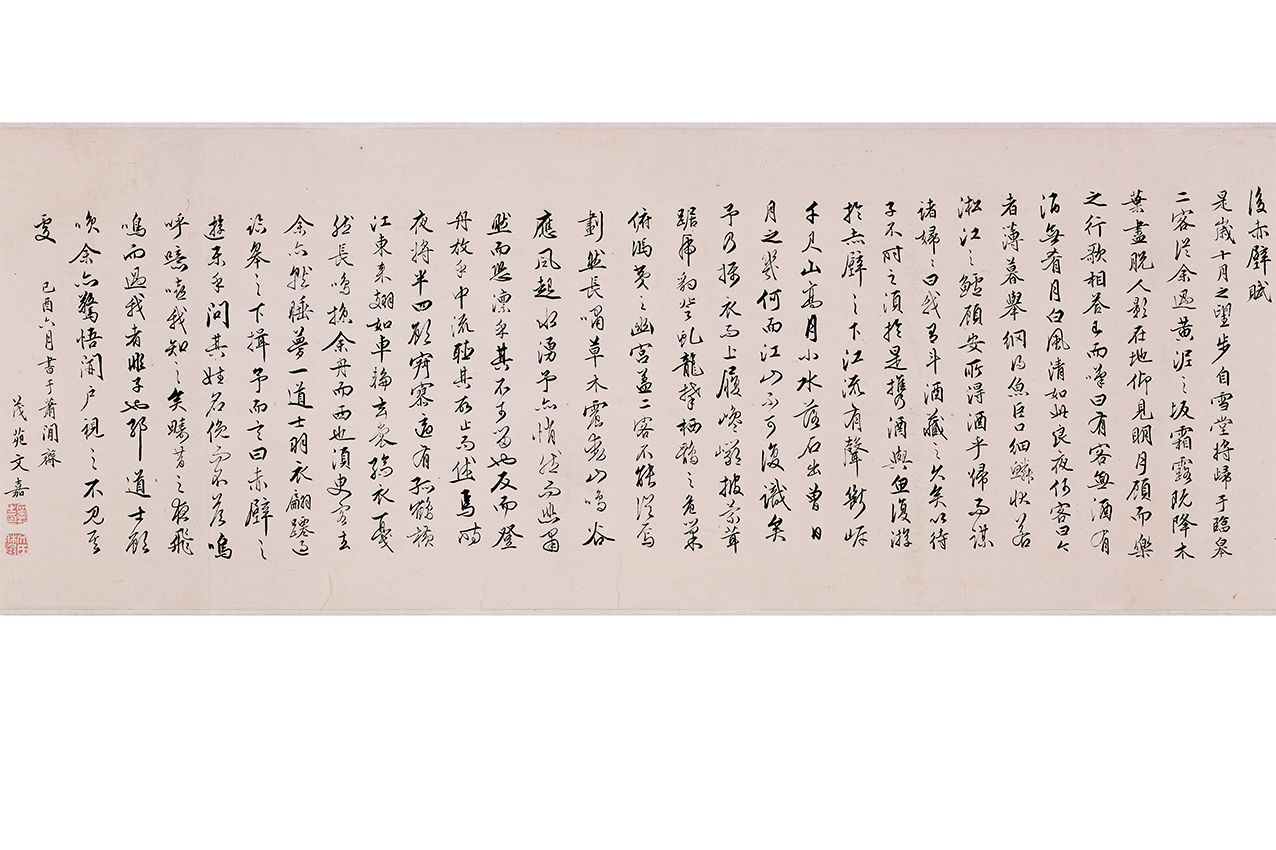 後赤壁賦
是歲十月之望步自雪堂將歸于臨皋
二客從余過黃泥之坂霜露既降木
葉盡脫人影在地仰見明月顧而樂
之行歌相答已而嘆曰有客無酒有
酒無肴月白風清如此良夜何客曰今
者薄暮舉網得魚巨口細鱗狀若
淞江之鱸顧安所得酒乎歸而謀
諸婦婦曰我有斗酒藏之久矣以待
子不時之須於是攜酒與魚復游
於赤壁之下江流有聲斷岸
千尺山高月小水落石出曾日
月之幾何而江山不可復識矣
予乃攝衣而上履巉巖披蒙茸
踞虎豹登虬龍攀栖鶻之危巢
俯馮夷之幽宮蓋二客不能從焉
劃然長嘯草木震動山鳴谷
應風起水湧予亦悄然而悲肅
然而恐凜乎其不可留也反而登
舟放乎中流聽其所止而休焉時
夜將半四顧寂寥適有孤鶴橫
江東來翅如車輪玄裳縞衣戛
然長鳴掠余舟而西也須臾客去
余亦就睡夢一道士羽衣翩躚過
臨皋之下揖予而言曰赤壁之
遊樂乎問其姓名俛而不答嗚
呼噫嘻我知之矣疇昔之夜飛
鳴而過我者非子也耶道士顧
笑余亦驚悟開戶視之不見其
處
己酉六月書于蕭閒齋
茂苑文嘉